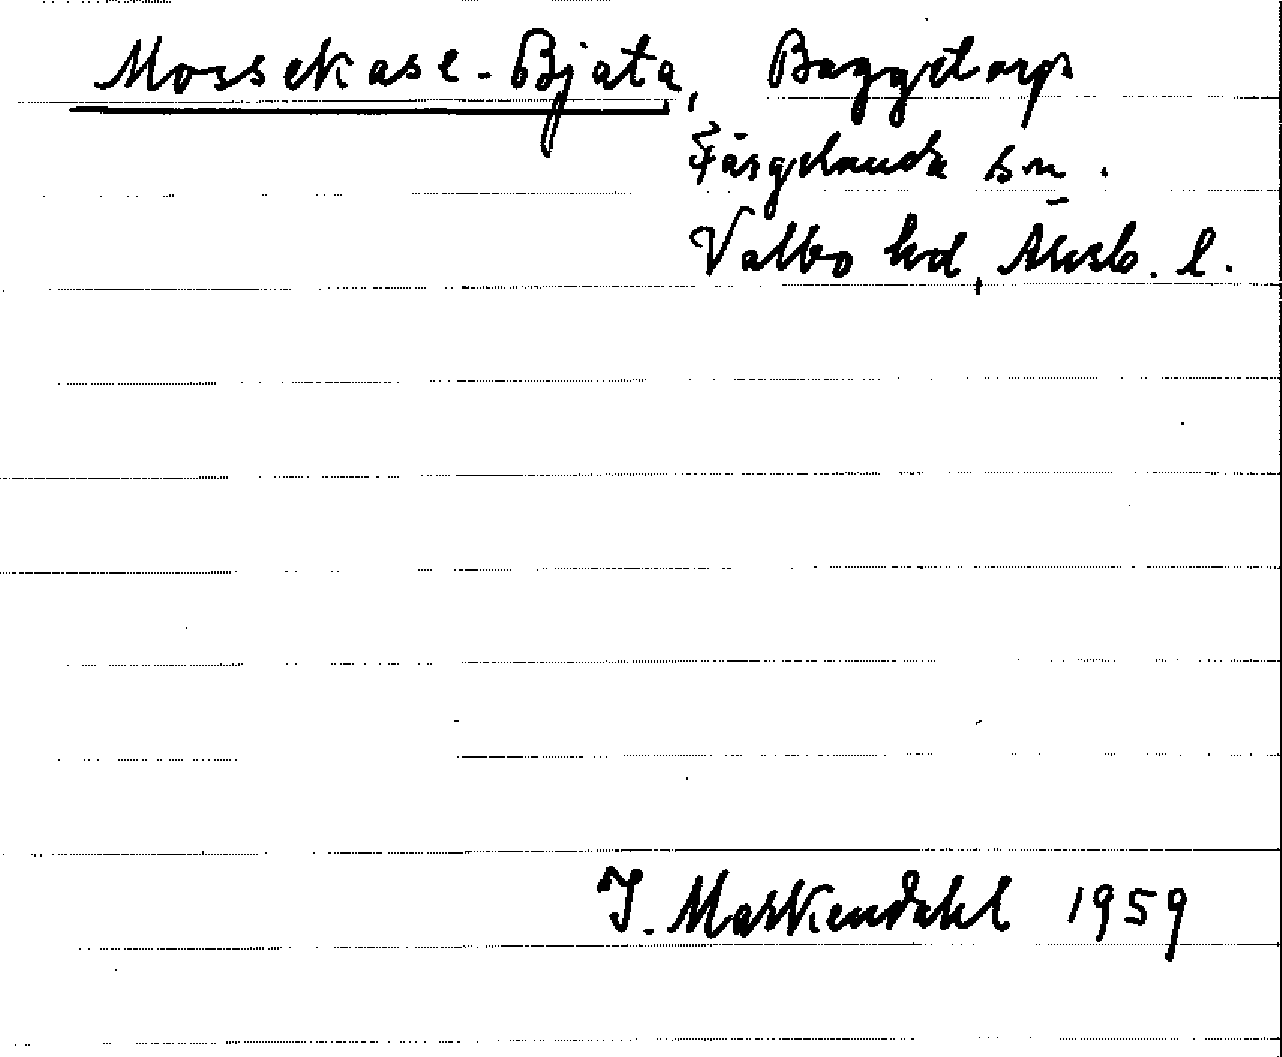 Mossekase-Bjata, Baggetorp
Färgelanda sn.
Valbo hd, Älvsb. l.
J. Markendahl 1959